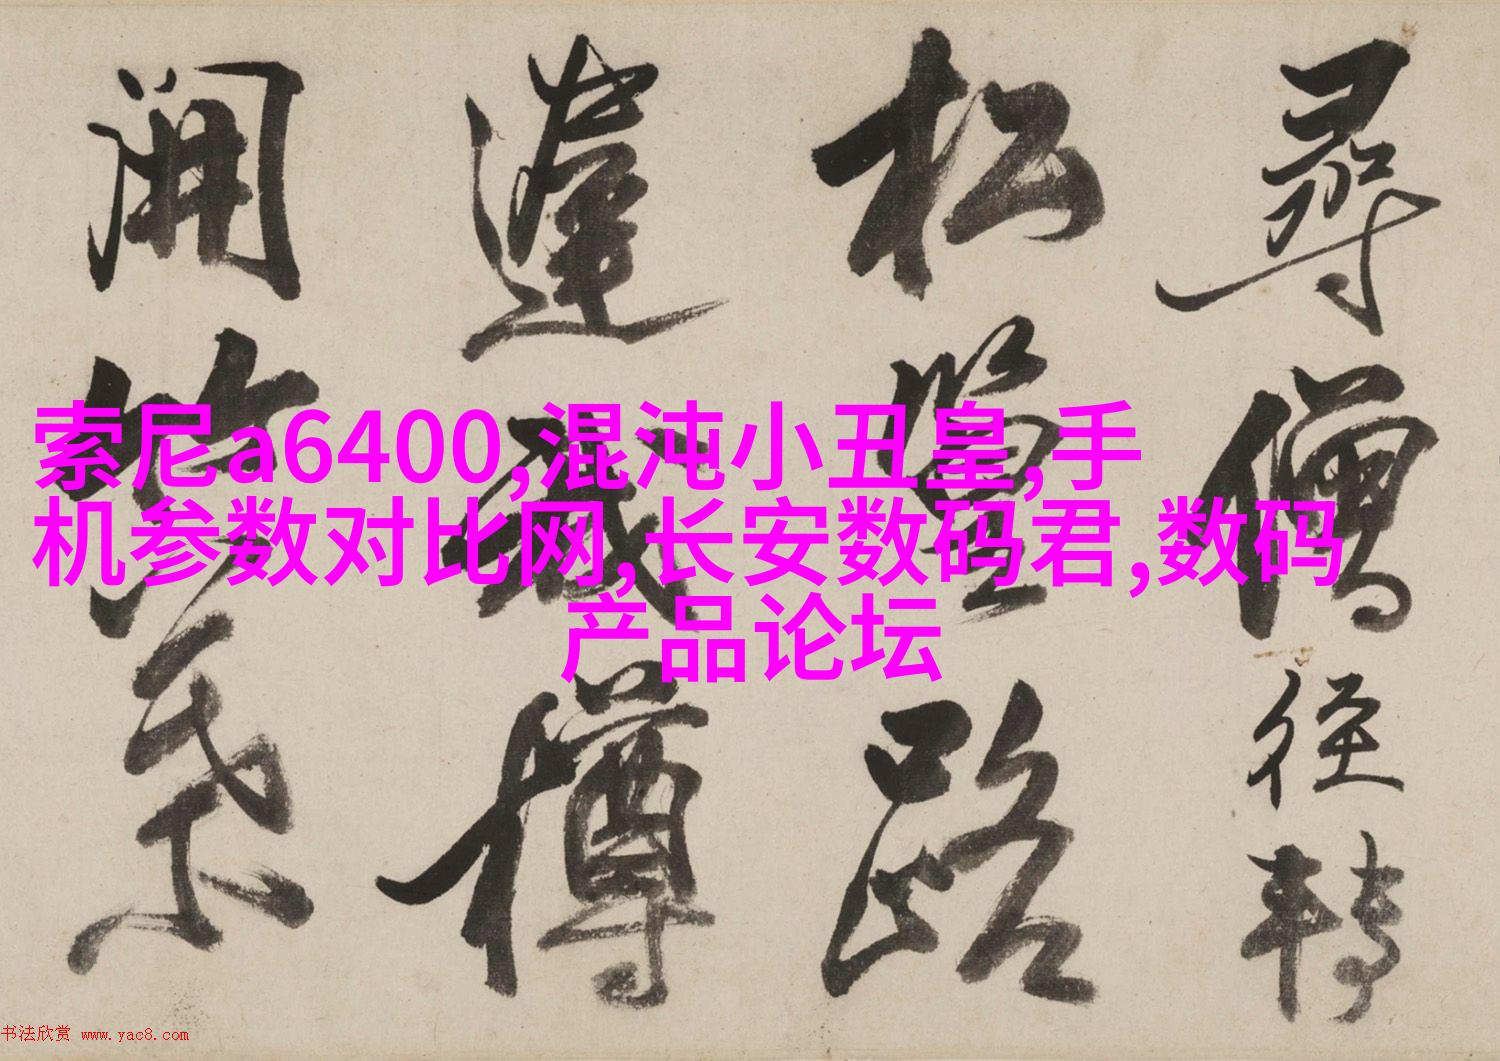 尋僧徑轉
松篁路
蓬城樽
開
索尼a6400,混沌小丑皇,手
机参数对比网,长安数码君,数码
产品论坛
书法欣赏 www.yac8.com